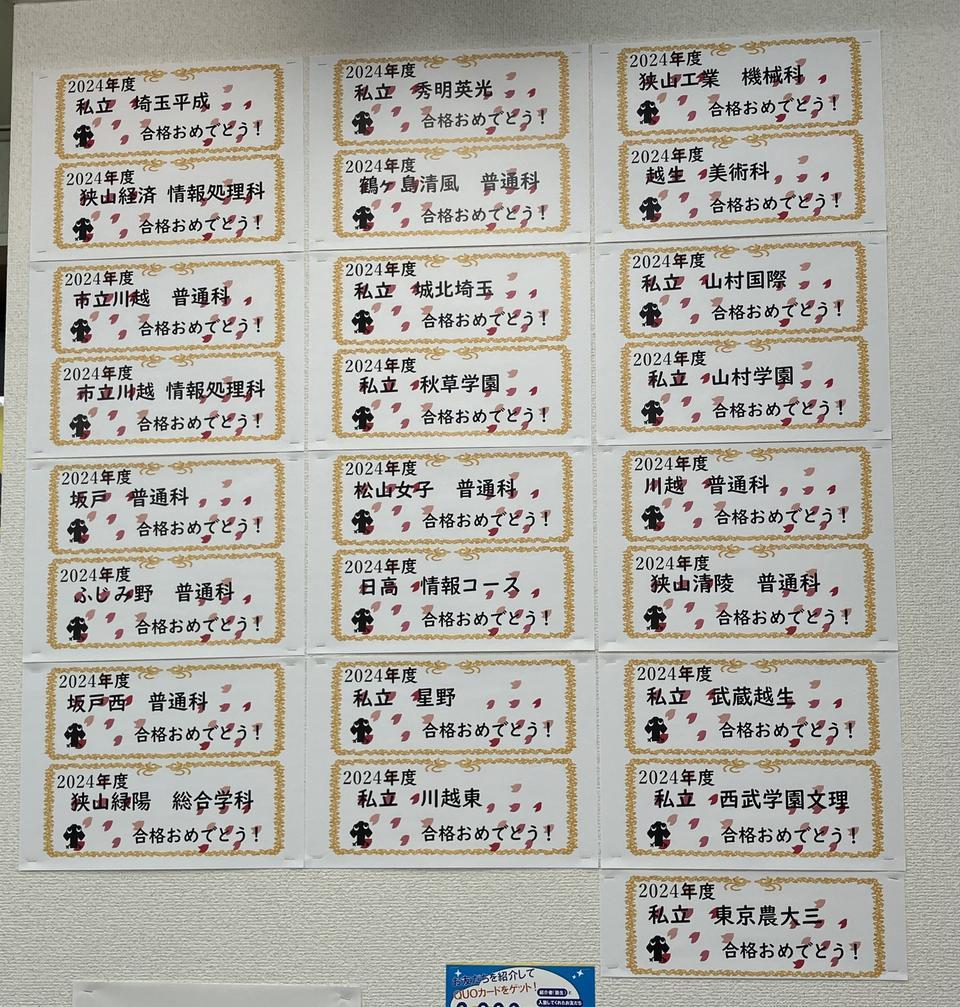 2024年度
私立 埼玉平成
合格おめでとう!
2024年度
狭山経済 情報処理科
合格おめでとう!
2024年度
市立川越 普通科
合格おめでとう!
2024年度
市立川越 情報処理科
合格おめでとう!
2024年度
坂戸 普通科
合格おめでとう!
2024年度
ふじみ野 普通科
合格おめでとう!
2024年度
坂戸西 普通科
合格おめでとう!
2024年度
狭山緑陽 総合学科
合格おめでとう!
2024年度
私立 秀明英光
合格おめでとう!
2024年度
鶴ヶ島清風 普通科
合格おめでとう!
2024年度
私立 城北埼玉
合格おめでとう!
2024年度
私立 秋草学園
合格おめでとう!
2024年度
松山女子 普通科
合格おめでとう!
2024年度
日高 情報コース
合格おめでとう!
2024年度
私立 星野
合格おめでとう!
2024年度
私立 川越東
合格おめでとう!
2024年度
狭山工業 機械科
合格おめでとう!
2024年度
越生 美術科
合格おめでとう!
2024年度
私立 山村国際
合格おめでとう!
2024年度
私立 山村学園
合格おめでとう!
2024年度
川越 普通科
合格おめでとう!
2024年度
狭山清陵 普通科
合格おめでとう!
2024年度
私立 武蔵越生
合格おめでとう!
2024年度
私立 西武学園文理
合格おめでとう!
2024年度
私立 東京農大三
合格おめでとう!
お友だちを紹介して
QUOカードをゲット!